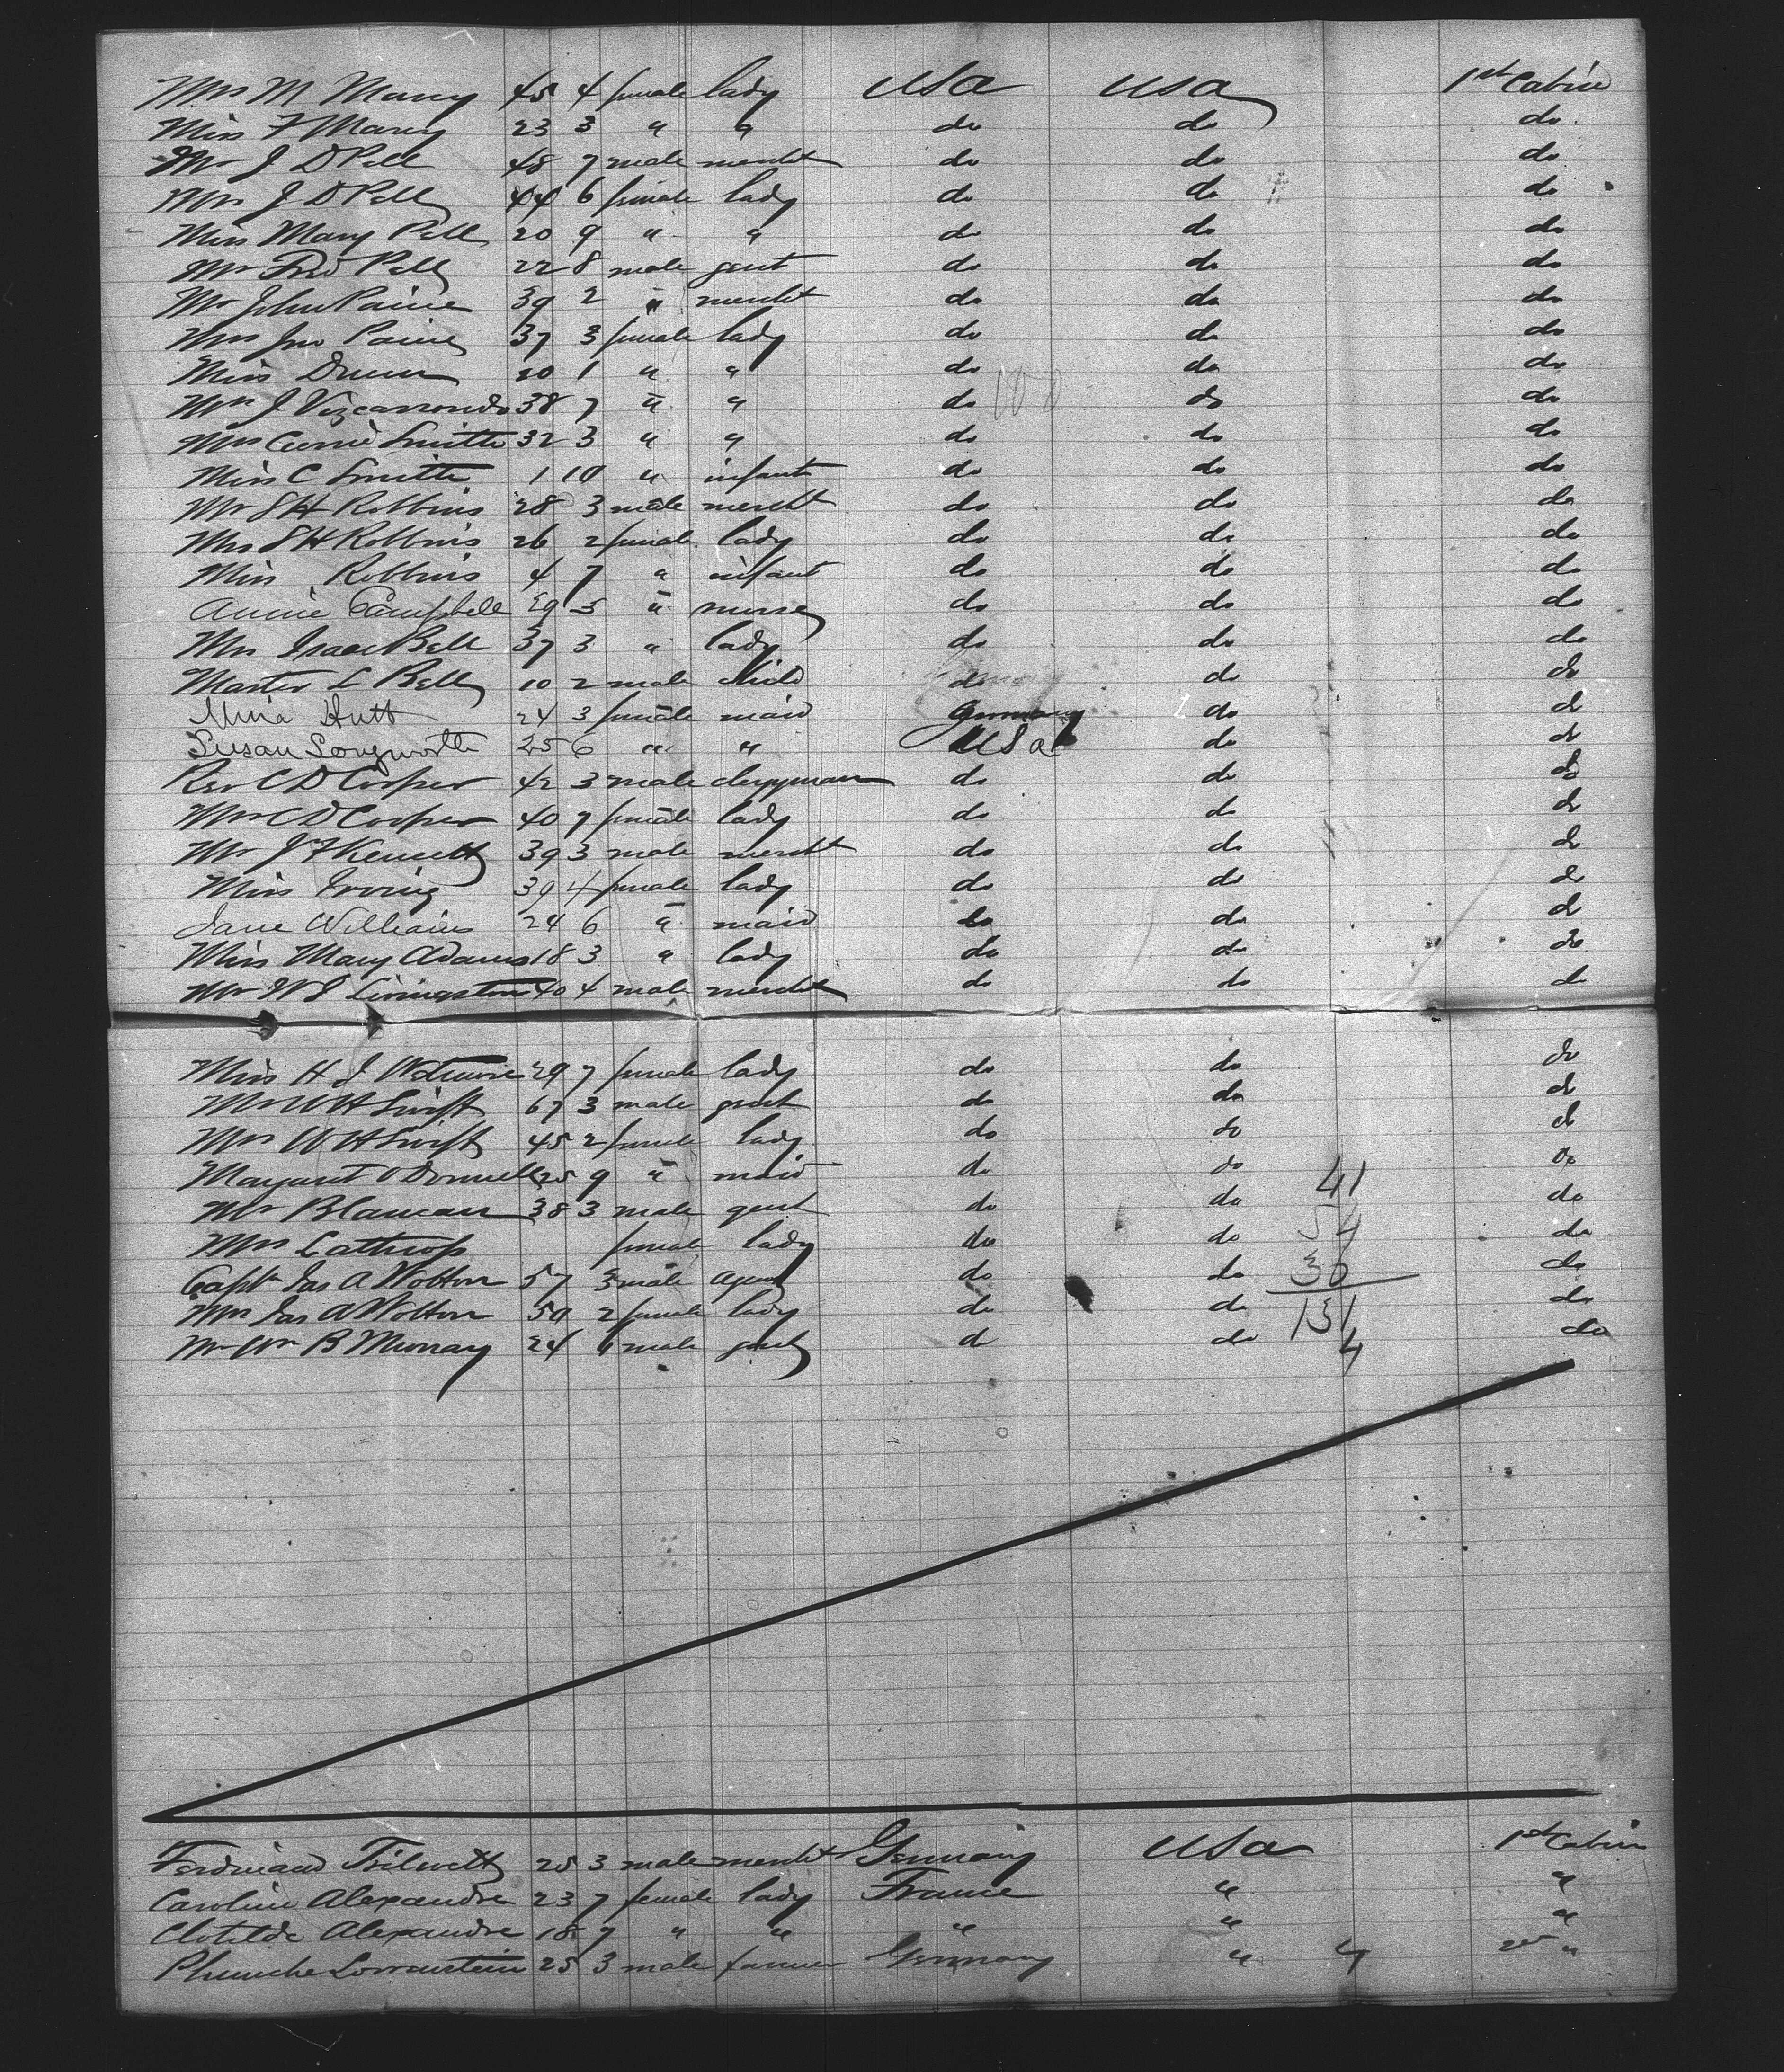 Mrs M Marcy 45 4 female lady USA USA 1st Cabin
Miss F Marcy 23 3 " " do do do
Mr J D Pell 48 7 male mercht do do do
Mrs J D Pell 44 6 female lady do do do
Miss Mary Pell 20 9 " " do do do
Mr Fred Pell 22 8 male gent do do do
Mr John Paine 39 2 " mercht do do do
Mrs Jno Paine 37 3 female lady do do do
Miss Dunn 20 1 " " do do do
Mrs J Vizcarrondo 38 7 " " do 100 do do
Mrs Smith 32 3 " " do do do
Miss C Smith 1 10 " infant do do do
Mr S H Robbins 28 3 male mercht do do do
Mrs S H Robbins 26 2 female lady do do do
Miss Robbins 4 7 " infant do do do
Annie Campbell 29 5 " nurse do do do
Mrs Isaac Bell 37 3 " lady do do do
Master L Bell 10 2 male child do do do
Mina Hutt 24 3 female maid Germany do do
Susan Longworth 25 6 " " USA do do
Rev C D Cooper 42 3 male clergyman do do do
Mrs C D Cooper 40 7 female lady do do do
Mr J F Kennett 39 3 male mercht do do do
Miss Irving 39 4 female lady do do do
Jane Williams 24 6 " maid do do do
Miss Mary Adams 18 3 " lady do do do
Mr W S Livingston 40 4 male mercht do do do
Miss H J Wetmore 29 7 female lady do do do
Mr W H Swift 67 3 male gent do do do
Mrs W H Swift 45 2 female lady do do do
Margaret O Donnell 25 9 " maid do do 41 do
Mr Blancan 38 3 male gent do do 54 do
Mrs Lathrop female lady do do do
Captn Jas A Wotton 57 3 male agent do do 36 do
Mrs Jas A Wotton 50 2 female lady do do 131 do
Mr Wm B Murray 24 6 male gent do do 4 do
Ferdinand 25 3 male mercht Germany USA 1st Cabin
Caroline Alexandre 23 7 female lady France " "
Clotilde Alexandre 18 7 " " " " "
25 3 male farmer Germany " 4 2nd "